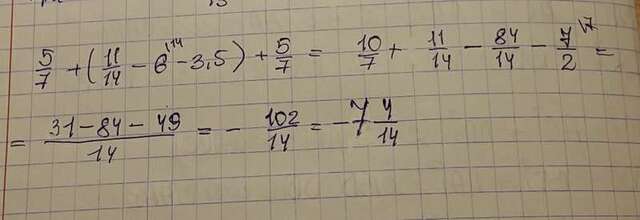 5/7 + (11/14 - 6^\14 - 3,5) + 5/7 = 10/7 + 11/14 - 84/14 - 7/2^\7 =
= (31 - 84 - 49)/14 = - 102/14 = -7 4/14